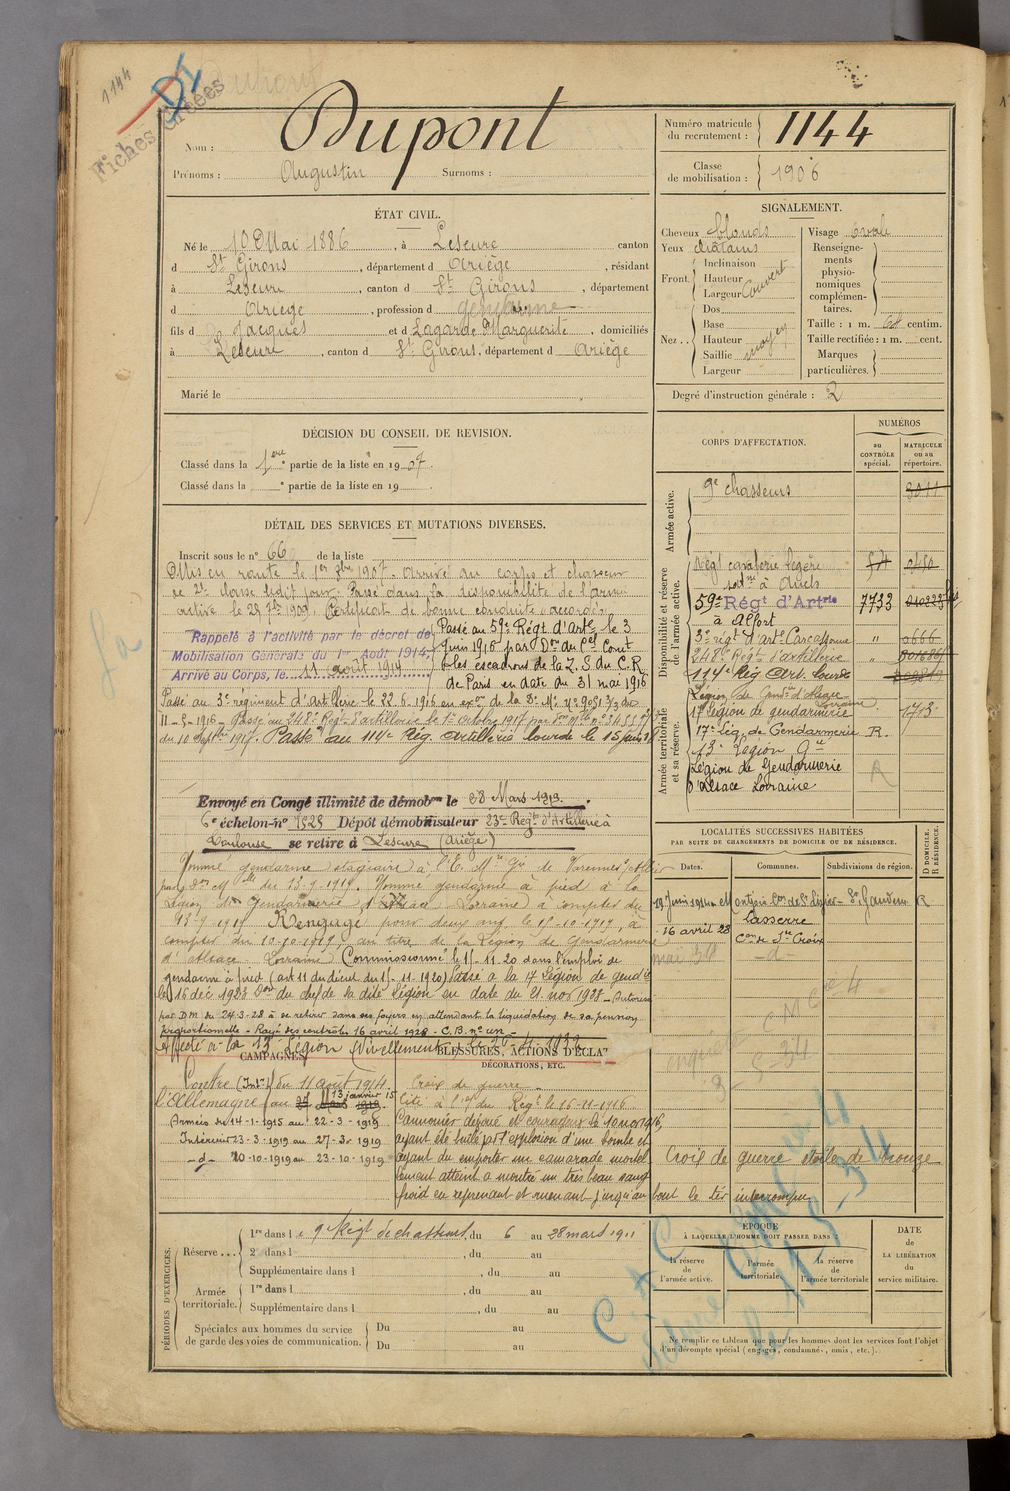 1144
Fiches Créées
Nom : Dupont
Prénoms : Augustin Surnoms :
Numéro matricule
du recrutement : 1144
Classe
de mobilisation : 1906
ÉTAT CIVIL.
Né le 10 Mai 1886, à Lescure canton
d St Girons, département d Ariège, résidant
à Lescure, canton d St Girons, département
d Ariège, profession d gendarme
fils d Jacques et d Lagarde Marguerite, domiciliés
à Lescure, canton d St Girons, département d Ariège
Marié le
SIGNALEMENT.
Cheveux blonds
Yeux châtains
Front. Inclinaison
Hauteur
Largeur Couvert
Nez .. Dos
Base
Hauteur
Saillie moyen
Largeur
Visage ovale
Renseigne-
ments
physio-
nomiques
complémen-
taires.
Taille : 1 m. 68 centim.
Taille rectifiée : 1 m. cent.
Marques
particulières.
Degré d'instruction générale : 2
DÉCISION DU CONSEIL DE REVISION.
Classé dans la 1ere partie de la liste en 1907.
Classé dans la e partie de la liste en 19
DÉTAIL DES SERVICES ET MUTATIONS DIVERSES.
Inscrit sous le n° 66 de la liste
Mis en route le 1er 8bre 1907. Arrivé au corps et chasseur
de 2e classe ledit jour. Passé dans la disponibilité de l'armée
active le 25 7bre 1909. Certificat de bonne conduite accordé.
Rappelé à l'activité par le décret de
Mobilisation Générale du 1er Août 1914.
Arrivé au Corps, le 11 août 1914
Passé au 59e Régt d'Artie le 3
Juin 1916 par Don du Cel Comt
bles escadrons de la Z. S du C. R
de Paris en date du 31 mai 1916
Passé au 3e régiment d'Artillerie le 22.6.1916 en exon de la D. M. n° 9051 3/3 du
11-5-1916 - Passé au 248e Régt d'artillerie le 1er Octobre 1917 par Don Mlle n° 34559 3/3
du 10 Septbre 1917. Passé au 114e Rég. Artillerie lourde le 15 Juin 18
Envoyé en Congé illimité de démobon le 28 Mars 1919.
6e échelon-n° 1525 Dépôt démobilisateur 23e Régt d'Artillerie à
Toulouse se retire à Lescure (Ariège)
Nommé gendarme stagiaire à l'E. M. Gie de Varennes s/Allier
par Don Mlle du 13-9-1919. Nommé gendarme à pied à la
Légion de Gendarmerie d'Alsace Lorraine à compter du
13-9 1919 Rengagé pour deux ans le 15-10-1919, à
compter du 10-10-1919, au titre de la Légion de Gendarmerie
d'Alsace Lorraine Commissionné le 15-11-20 dans l'emploi de
gendarme à pied (art 11 du décret du 15-11-1920) Passé à la 17 Légion de gendie
le 16 déc 1928 Don du chef de la dite légion en date du 21 nov 1928 - Autorisé
par D.M. du 24-3-28 à se retirer dans ses foyers en attendant la liquidation de sa pension
proportionnelle - Rayé des contrôles 16 avril 1928 - C. B. n° un -
Affecté à la 13e Légion
CORPS D'AFFECTATION.
NUMÉROS
au
CONTRÔLE
spécial.
MATRICULE
ou au
répertoire.
Armée active.
9e chasseurs 3011
Disponibilité et réserve
de l'armée active.
Régt cavalerie légère 0450
à Auch
59e Régt d'Artrie 7733
à Alfort
3e régt d'artie Carcassonne " 0666
248e Régt d'artillerie "
114e Rég Art. lourde
Armée territoriale
et sa réserve.
Légion de Gendie d'Alsace
Lorraine
17e légion de gendarmerie 1713
17e Lég. de Gendarmerie R.
13e Légion Gie
Légion de Gendarmerie R
d'Alsace Lorraine
LOCALITÉS SUCCESSIVES HABITÉES
PAR SUITE DE CHANGEMENTS DE DOMICILE OU DE RÉSIDENCE.
Dates. Communes. Subdivisions de région.
D DOMICILE.
R RÉSIDENCE.
St Gaudens R
16 avril 28 Lasserre
Con de Ste Croix
mai 36 -d-
CAMPAGNES.
Contre (Intr) du 11 août 1914
l'Allemagne au 13 janvier 15
Armées du 14-1-1915 au 22-3-1919
Intérieur 23-3-1919 au 27-3-1919
-d- 10-10-1919 au 23-10-1919
BLESSURES, ACTIONS D'ÉCLAT
DÉCORATIONS, ETC.
Croix de guerre -
Cité à l'of du Régt le 16-11-1916
Canonnier dévoué et courageux le 10 nov 1916,
ayant été brûlé par l'explosion d'une bombe et
ayant dû emporter un camarade mortel
lement atteint a montré un très beau sang
froid en reprenant et menant jusqu'au bout le tir interrompu
Croix de guerre étoile de bronze
PÉRIODES D'EXERCICES.
Réserve ... 1re dans le 9 Régt de chasseurs, du 6 au 28 mars 1911
2e dans l , du au
Supplémentaire dans l , du au
Armée
territoriale. 1re dans l , du au
Supplémentaire dans l , du au
Spéciales aux hommes du service
de garde des voies de communication. Du au
Du au
ÉPOQUE
À LAQUELLE L'HOMME DOIT PASSER DANS :
la réserve
de
l'armée active.
l'armée
territoriale.
la réserve
de
l'armée territoriale
DATE
DE
LA LIBÉRATION
du
service militaire.
Ne remplir ce tableau que pour les hommes dont les services font l'objet
d'un décompte spécial (engagés, condamnés, omis, etc.).